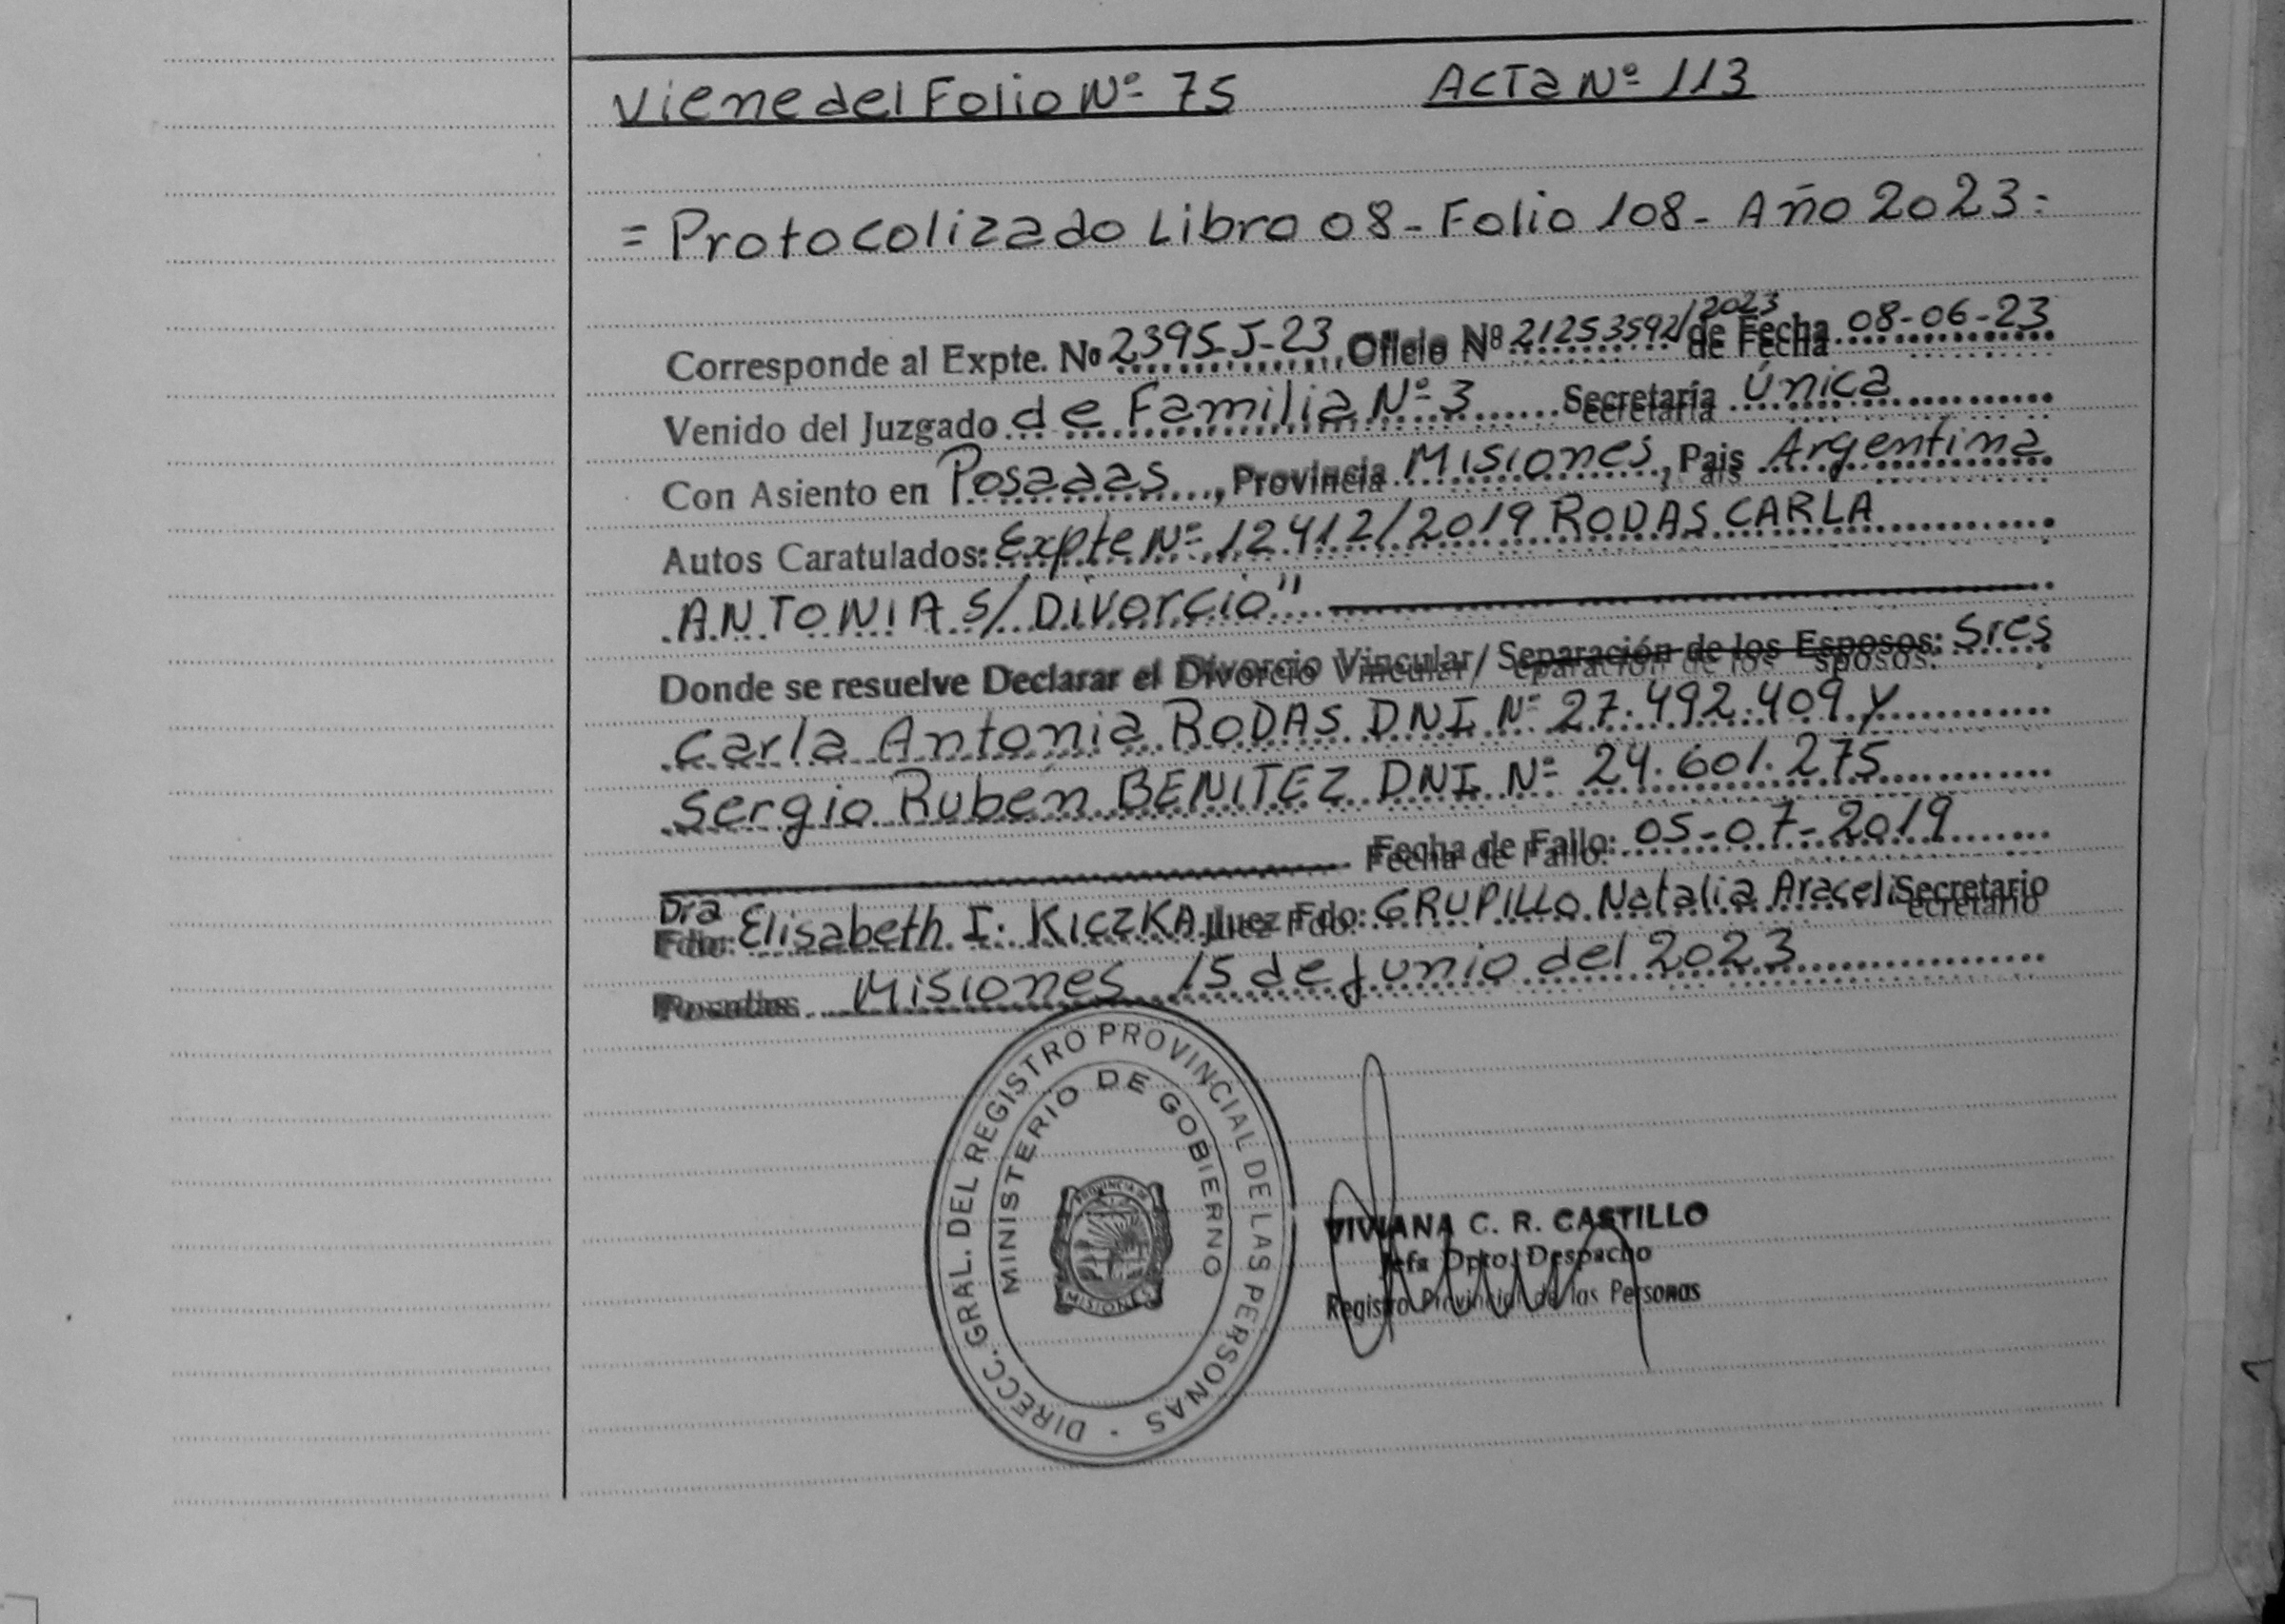 Viene del Folio Nº 75 Acta Nº 113
= Protocolizado Libro 08 - Folio 108 - Año 2023 =
Corresponde al Expte. Nº 2395-J-23, Oficio Nº 21253592/2023 de Fecha 08-06-23
Venido del Juzgado de Familia Nº 3 Secretaría Única
Con Asiento en Posadas, Provincia Misiones, Pais Argentina
Autos Caratulados: Expte Nº 12412/2019 RODAS CARLA
ANTONIA S/ Divorcio"
Donde se resuelve Declarar el Divorcio Vincular/ Separación de los Esposos: Sres
Carla Antonia RODAS DNI Nº 27.492.409 y
Sergio Rubén BENITEZ DNI Nº 24.601.275
Fecha de Fallo: 05-07-2019
Dra
Fdo: Elisabeth I. KICZKA Juez Fdo: GRUPILLO Natalia Araceli Secretario
Posadas Misiones 15 de Junio del 2023
DIRECC. GRAL. DEL REGISTRO PROVINCIAL DE LAS PERSONAS
MINISTERIO DE GOBIERNO
PROVINCIA DE
MISIONES
VIVIANA C. R. CASTILLO
Jefa Dpto. Despacho
Registro Provincial de las Personas